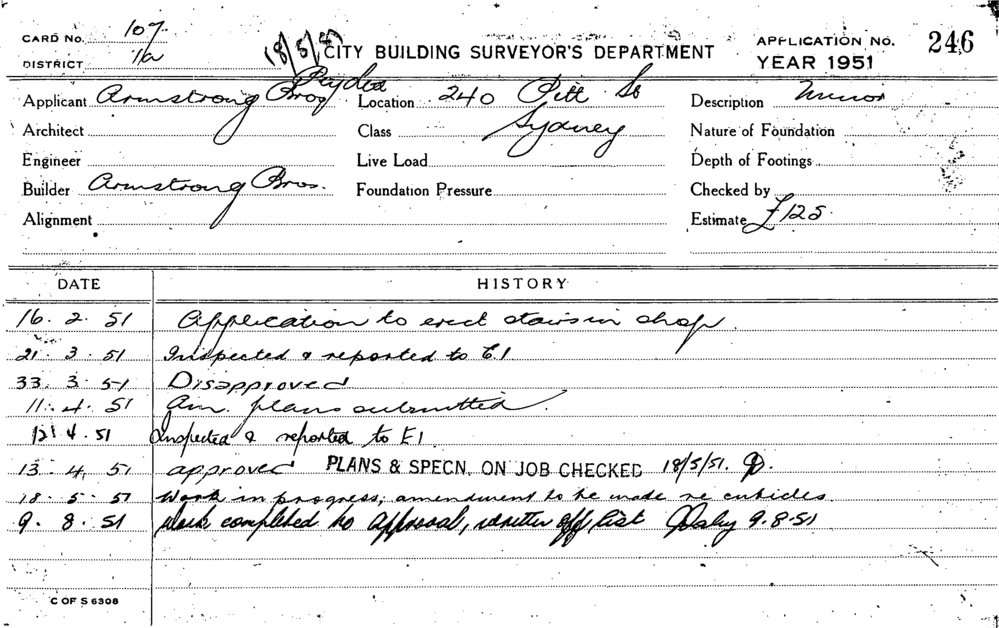 CARD No. 107
DISTRICT 11a
18/5/51
CITY BUILDING SURVEYOR'S DEPARTMENT
APPLICATION No. 246
YEAR 1951
Applicant Armstrong Bros Location 240 Pitt St Description Minor
Sydney
Architect Class Nature of Foundation
Engineer Live Load Depth of Footings
Builder Armstrong Bros. Foundation Pressure Checked by
Alignment Estimate £125
DATE HISTORY
16. 2. 51 Application to erect stairs in shop
21. 3. 51 Inspected & reported to E.I
33. 3. 51 Disapproved
11. 4. 51 Am. plans submitted.
12. 4. 51 Inspected & reported to E.I.
13. 4. 51 approved PLANS & SPECN. ON JOB CHECKED 18/5/51.
18. 5. 51 Work in progress; amendment to be made re cubicles
9. 8. 51 Work completed to approval, written off list 9.8.51
C OF S 6308